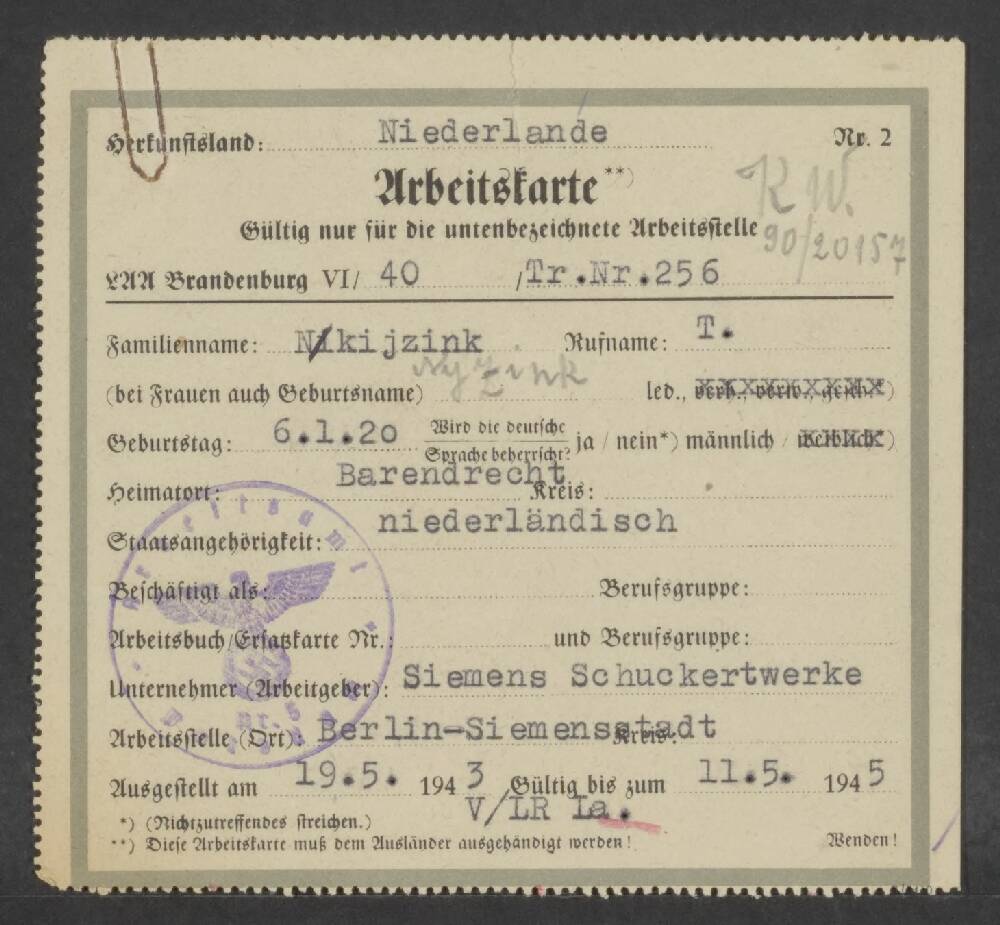 Herkunftsland: Niederlande Nr. 2
Arbeitskarte**)
K.W.
Gültig nur für die untenbezeichnete Arbeitsstelle
90/20157
LAA Brandenburg VI/ 40 /Tr.Nr.256
Familienname: Nikijzink Rufname: T.
Nyzink
(bei Frauen auch Geburtsname) led., verh., verw., gesch.*)
Geburtstag: 6.1.20 Wird die deutsche Sprache beherrscht? ja / nein*) männlich / weiblich*)
Heimatort: Barendrecht Kreis:
Staatsangehörigkeit: niederländisch
Beschäftigt als: Berufsgruppe:
Arbeitsbuch/Ersatzkarte Nr.: und Berufsgruppe:
Unternehmer (Arbeitgeber): Siemens Schuckertwerke
Arbeitsstelle (Ort): Berlin-Siemensstadt Kreis:
Ausgestellt am 19.5. 1943 Gültig bis zum 11.5. 1945
V/LR La.
*) (Nichtzutreffendes streichen.)
**) Diese Arbeitskarte muß dem Ausländer ausgehändigt werden! Wenden!
Arbeitsamt
nr. 5